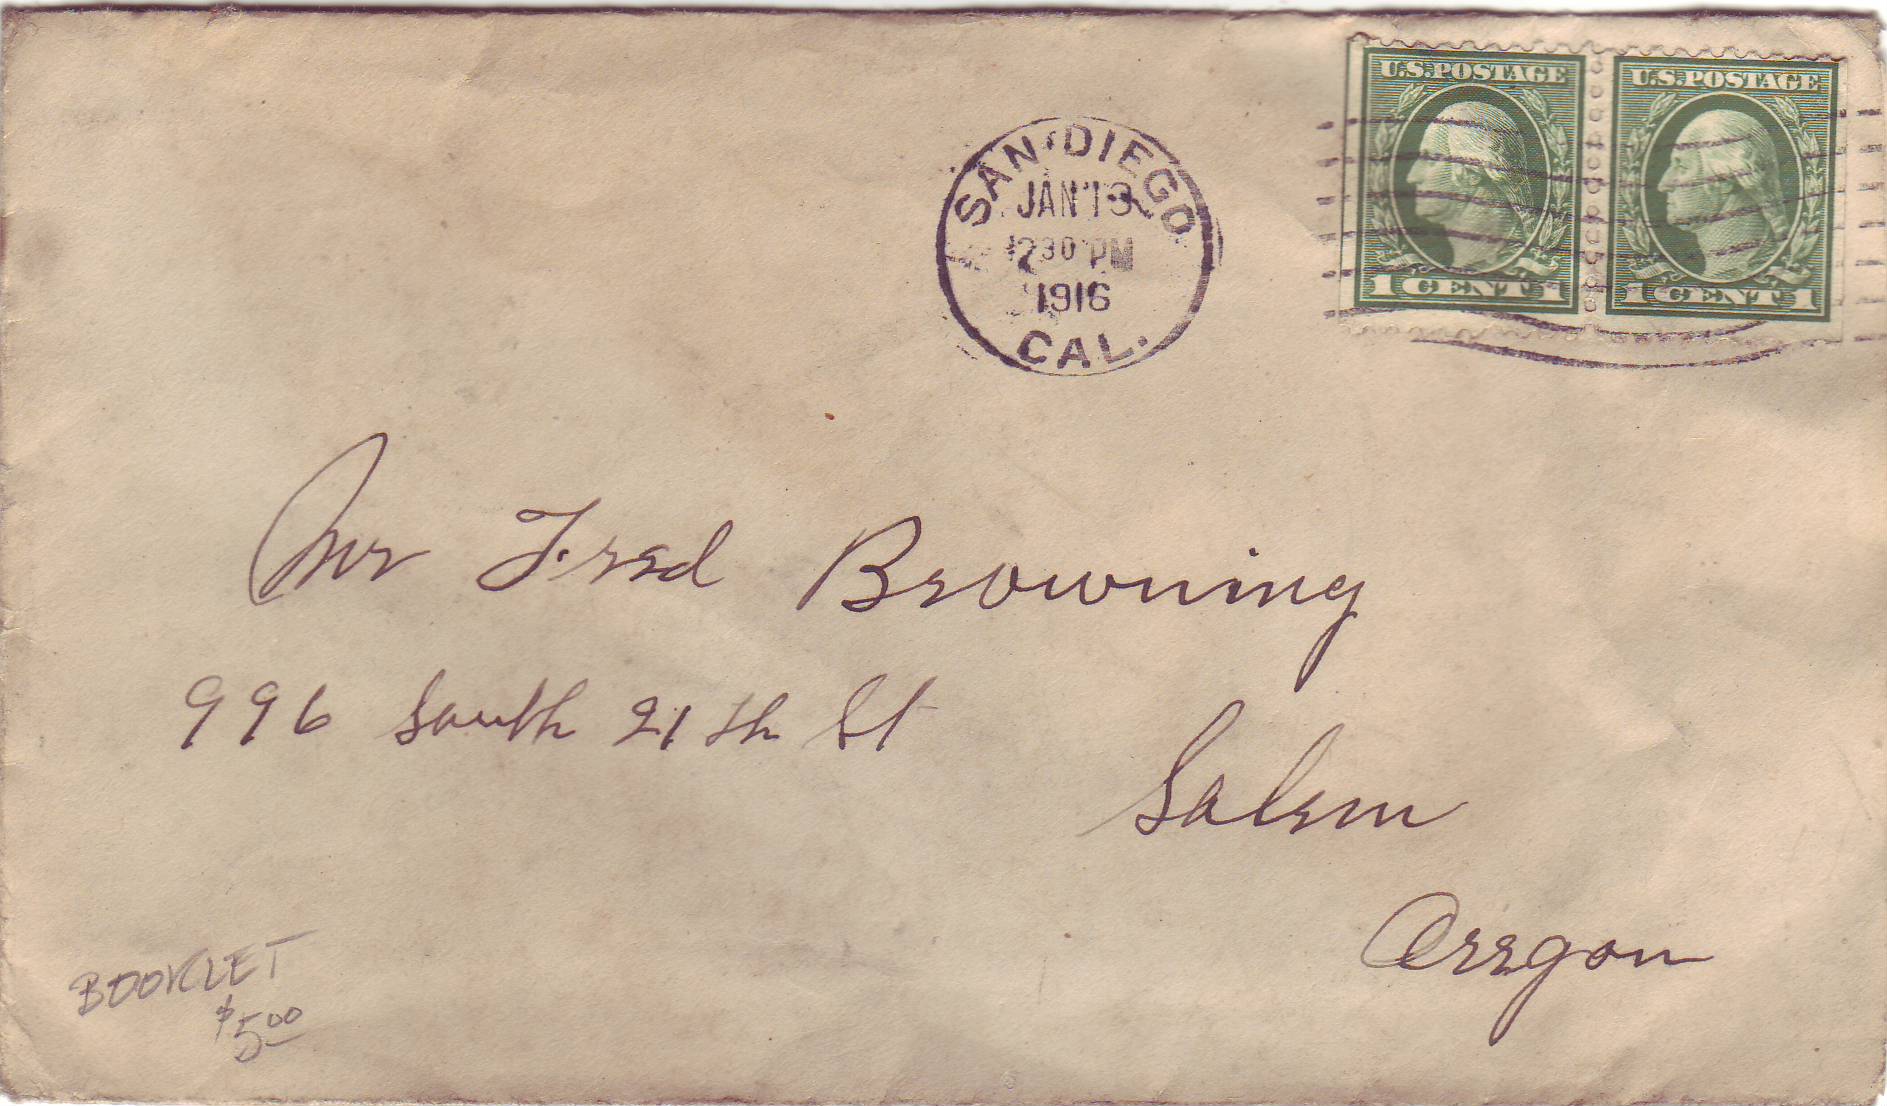 U.S.POSTAGE U.S.POSTAGE
1 CENT 1 1 CENT 1
SAN DIEGO
JAN 13
1230 PM
1916
CAL.
Mr Fred Browning
996 South 21 th St
Salem
Oregon
BOOKLET
$5.00